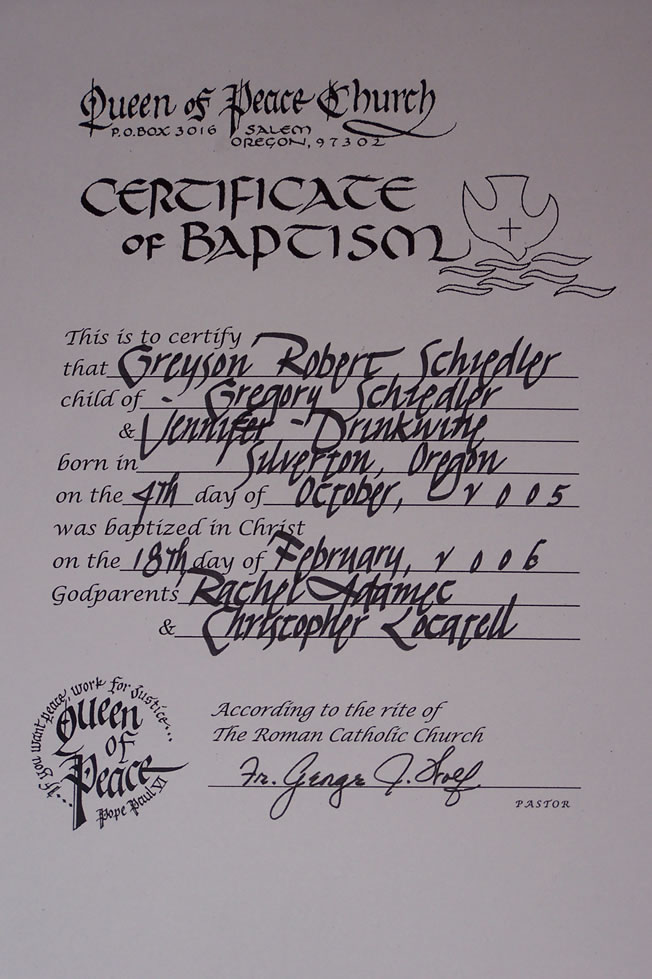 Queen of Peace Church
P.O.BOX 3016 SALEM
OREGON, 97302
CERTIFICATE
OF BAPTISM
This is to certify
that Greyson Robert Schiedler
child of - Gregory Schiedler
& Jennifer - Drinkwine
born in Silverton, Oregon
on the 4th day of October, 2005
was baptized in Christ
on the 18th day of February, 2006
Godparents Rachel Adamec
& Christopher Locatell
...If you want peace, work for justice...
Queen
of
Peace
Pope Paul VI
According to the rite of
The Roman Catholic Church
Fr. George J. Wolf
PASTOR